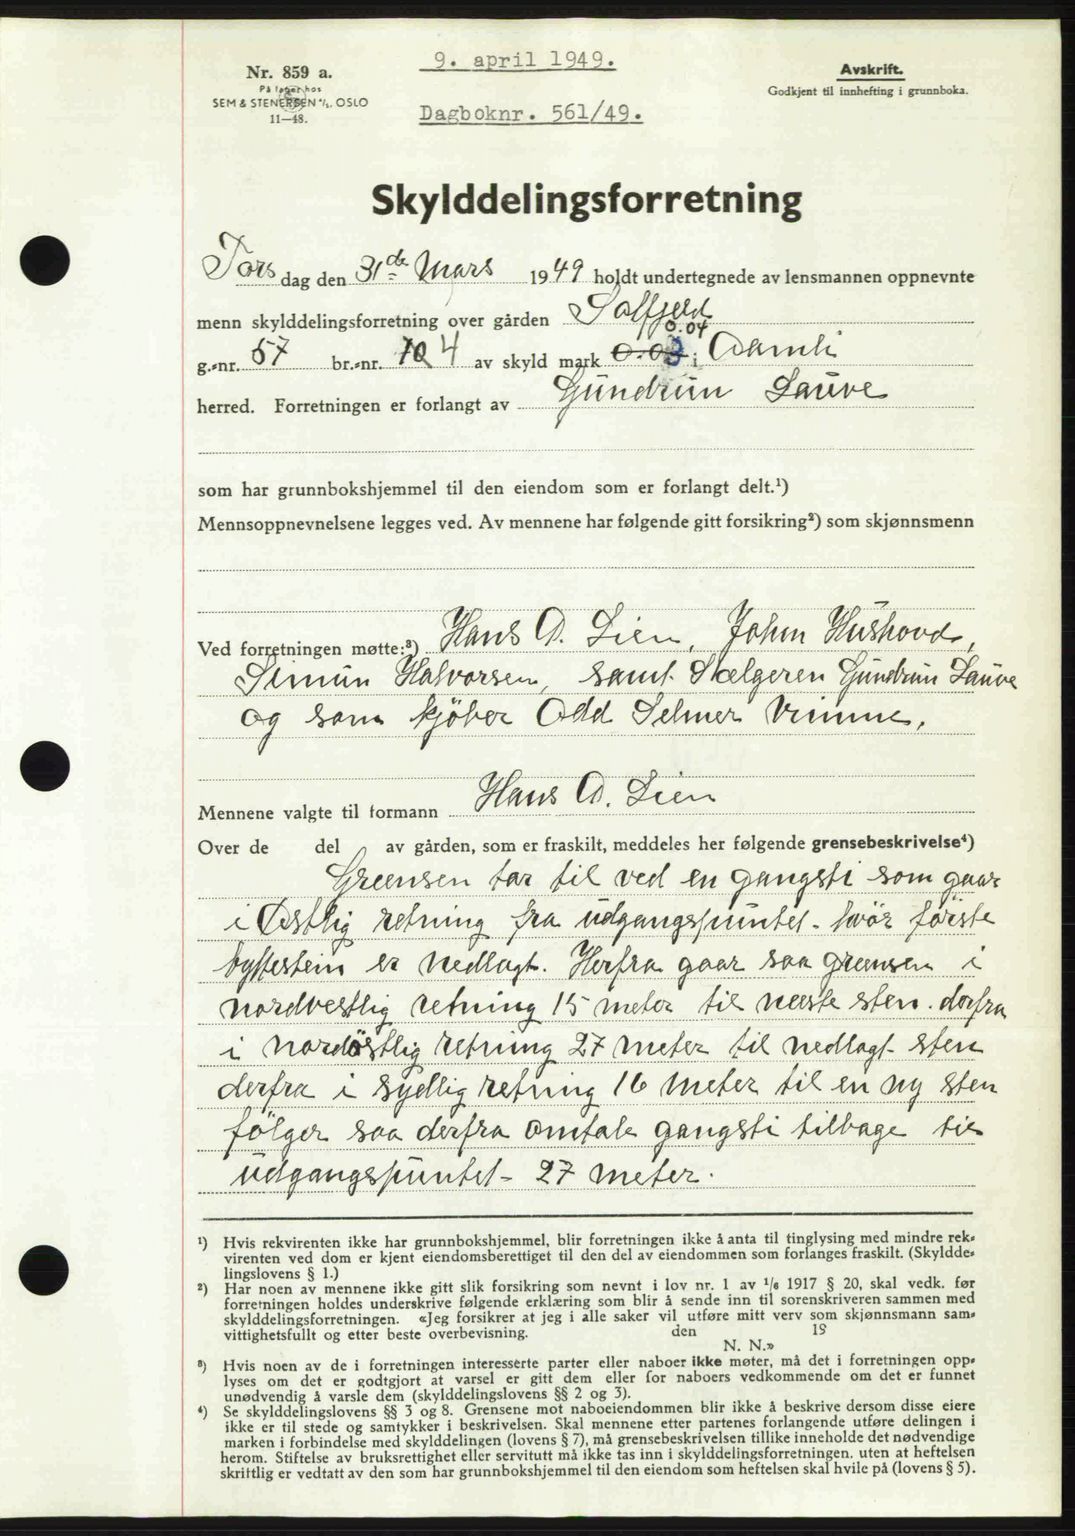 9. april 1949.
Dagboknr. 561/49.
Nr. 859 a.
På lager hos
SEM & STENERSEN A/S, OSLO
11—48.
Avskrift.
Godkjent til innhefting i grunnboka.
Skylddelingsforretning
Tors dag den 31de Mars 1949 holdt undertegnede av lensmannen oppnevnte
menn skylddelingsforretning over gården Solfjeld
0.04
g.-nr. 57 br.-nr. 4 av skyld mark 0.03 i Aamli
herred. Forretningen er forlangt av Gundrun Sauve
som har grunnbokshjemmel til den eiendom som er forlangt delt.¹)
Mennsoppnevnelsene legges ved. Av mennene har følgende gitt forsikring²) som skjønnsmenn
Ved forretningen møtte:³) Hans O. Lien, John Hushovd,
Simun Halvorsen, samt Sælgeren Gundrun Sauve
og som kjöber Odd Selmer Vimme.
Mennene valgte til formann Hans O. Lien
Over de del av gården, som er fraskilt, meddeles her følgende grensebeskrivelse⁴)
Greensen tar til ved en gangsti som gaar
i Östlig retning fra udgangspuntet - hvör förste
byttestein er nedlagt. Herfra gaar saa greensen i
nordvestlig retning 15 meter til næste sten. derfra
i nordöstlig retning 27 meter til nedlagt sten
derfra i sydlig retning 16 meter til en ny sten
fölger saa derfra omtale gangsti tilbage til
udgangspuntet - 27 meter.
¹) Hvis rekvirenten ikke har grunnbokshjemmel, blir forretningen ikke å anta til tinglysing med mindre rek-
virenten ved dom er kjent eiendomsberettiget til den del av eiendommen som forlanges fraskilt. (Skyldde-
lingslovens § 1.)
²) Har noen av mennene ikke gitt slik forsikring som nevnt i lov nr. 1 av ¹/₆ 1917 § 20, skal vedk. før
forretningen holdes underskrive følgende erklæring som blir å sende inn til sorenskriveren sammen med
skylddelingsforretningen. «Jeg forsikrer at jeg i alle saker vil utføre mitt verv som skjønnsmann sam-
vittighetsfullt og etter beste overbevisning. den 19
N. N.»
³) Hvis noen av de i forretningen interesserte parter eller naboer ikke møter, må det i forretningen opp-
lyses om det er godtgjort at varsel er gitt dem eller for naboers vedkommende om det er funnet
unødvendig å varsle dem (skylddelingslovens §§ 2 og 3).
⁴) Se skylddelingslovens §§ 3 og 8. Grensene mot naboeiendommen blir ikke å beskrive dersom disse eiere
ikke er til stede og samtykker i beskrivelsen. Skal mennene etter partenes forlangende utføre delingen i
marken i forbindelse med skylddelingen (lovens § 7), må grensebeskrivelsen tillike inneholde det nødvendige
herom. Stiftelse av bruksrettighet eller servitutt må ikke tas inn i skylddelingsforretningen, uten at heftelsen
skriftlig er vedtatt av den som har grunnbokshjemmel til den eiendom som heftelsen skal hvile på (lovens § 5).